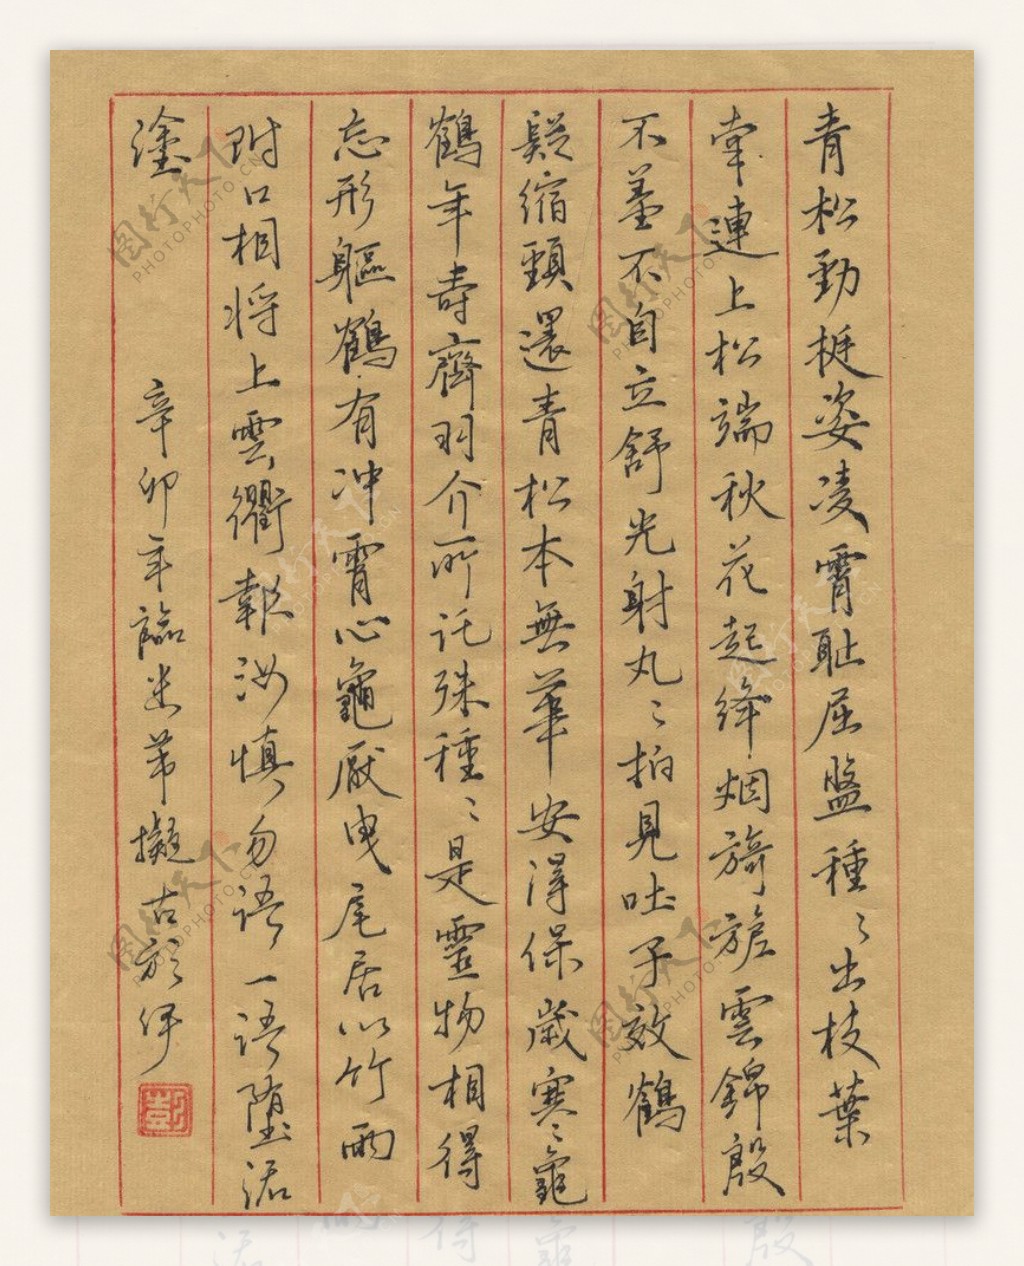 青松勁挺姿凌霄耻屈盤種〻出枝葉
牽連上松端秋花起絳烟旖旎雲錦殷
不羞不自立舒光射丸〻柏見吐子效鶴
疑縮頸還青松本無華安得保歲寒〻龜
鶴年壽齊羽介所託殊種〻是靈物相得
忘形軀鶴有冲霄心龜厭曳尾居以竹兩
附口相将上雲衢報汝慎勿語一語墮泥
塗
辛卯年臨米芾擬古於伊
彭
图行天下
PHOTOPHOTO.CN